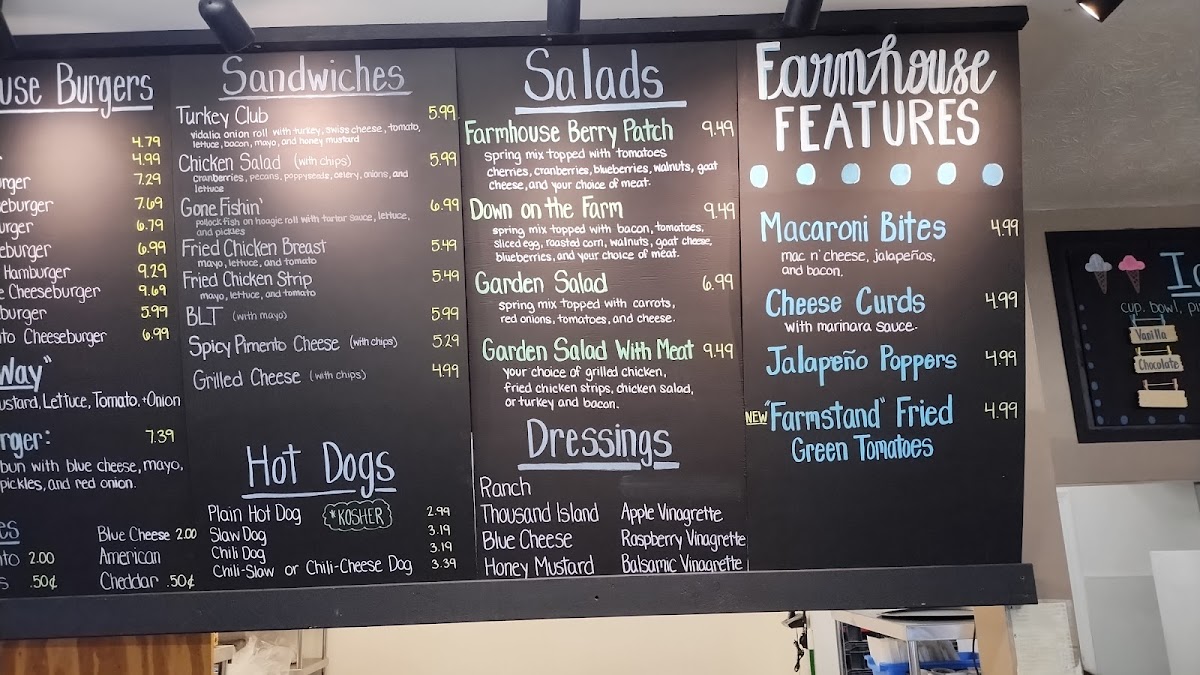 use Burgers
4.79
4.99
urger 7.29
eburger 7.69
urger 6.79
eburger 6.99
Hamburger 9.29
e Cheeseburger 9.69
burger 5.99
nto Cheeseburger 6.99
Way"
ustard, Lettuce, Tomato, +Onion
rger: 7.39
bun with blue cheese, mayo,
pickles, and red onion.
es
Blue Cheese 2.00
nto 2.00 American
s .50¢ Cheddar .50¢
Sandwiches
Turkey Club 5.99
vidalia onion roll with turkey, swiss cheese, tomato,
lettuce, bacon, mayo, and honey mustard
Chicken Salad (with chips) 5.99
cranberries, pecans, poppyseeds, celery, onions, and
lettuce
Gone Fishin' 6.99
pollock fish on hoagie roll with tartar sauce, lettuce,
and pickles
Fried Chicken Breast 5.49
mayo, lettuce, and tomato
Fried Chicken Strip 5.49
mayo, lettuce, and tomato
BLT (with mayo) 5.99
Spicy Pimento Cheese (with chips) 5.29
Grilled Cheese (with chips) 4.99
Hot Dogs
Plain Hot Dog *KOSHER 2.99
Slaw Dog 3.19
Chili Dog 3.19
Chili-Slaw or Chili-Cheese Dog 3.39
Salads
Farmhouse Berry Patch 9.49
spring mix topped with tomatoes
cherries, cranberries, blueberries, walnuts, goat
cheese, and your choice of meat.
Down on the Farm 9.49
spring mix topped with bacon, tomatoes,
sliced egg, roasted corn, walnuts, goat cheese,
blueberries, and your choice of meat.
Garden Salad 6.99
spring mix topped with carrots,
red onions, tomatoes, and cheese.
Garden Salad With Meat 9.49
your choice of grilled chicken,
fried chicken strips, chicken salad,
or turkey and bacon.
Dressings
Ranch
Thousand Island Apple Vinagrette
Blue Cheese Raspberry Vinagrette
Honey Mustard Balsamic Vinagrette
Farmhouse
FEATURES
Macaroni Bites 4.99
mac n' cheese, jalapeños,
and bacon.
Cheese Curds 4.99
with marinara sauce.
Jalapeño Poppers 4.99
NEW "Farmstand" Fried 4.99
Green Tomatoes
cup, bowl, pi
Vanilla
Chocolate